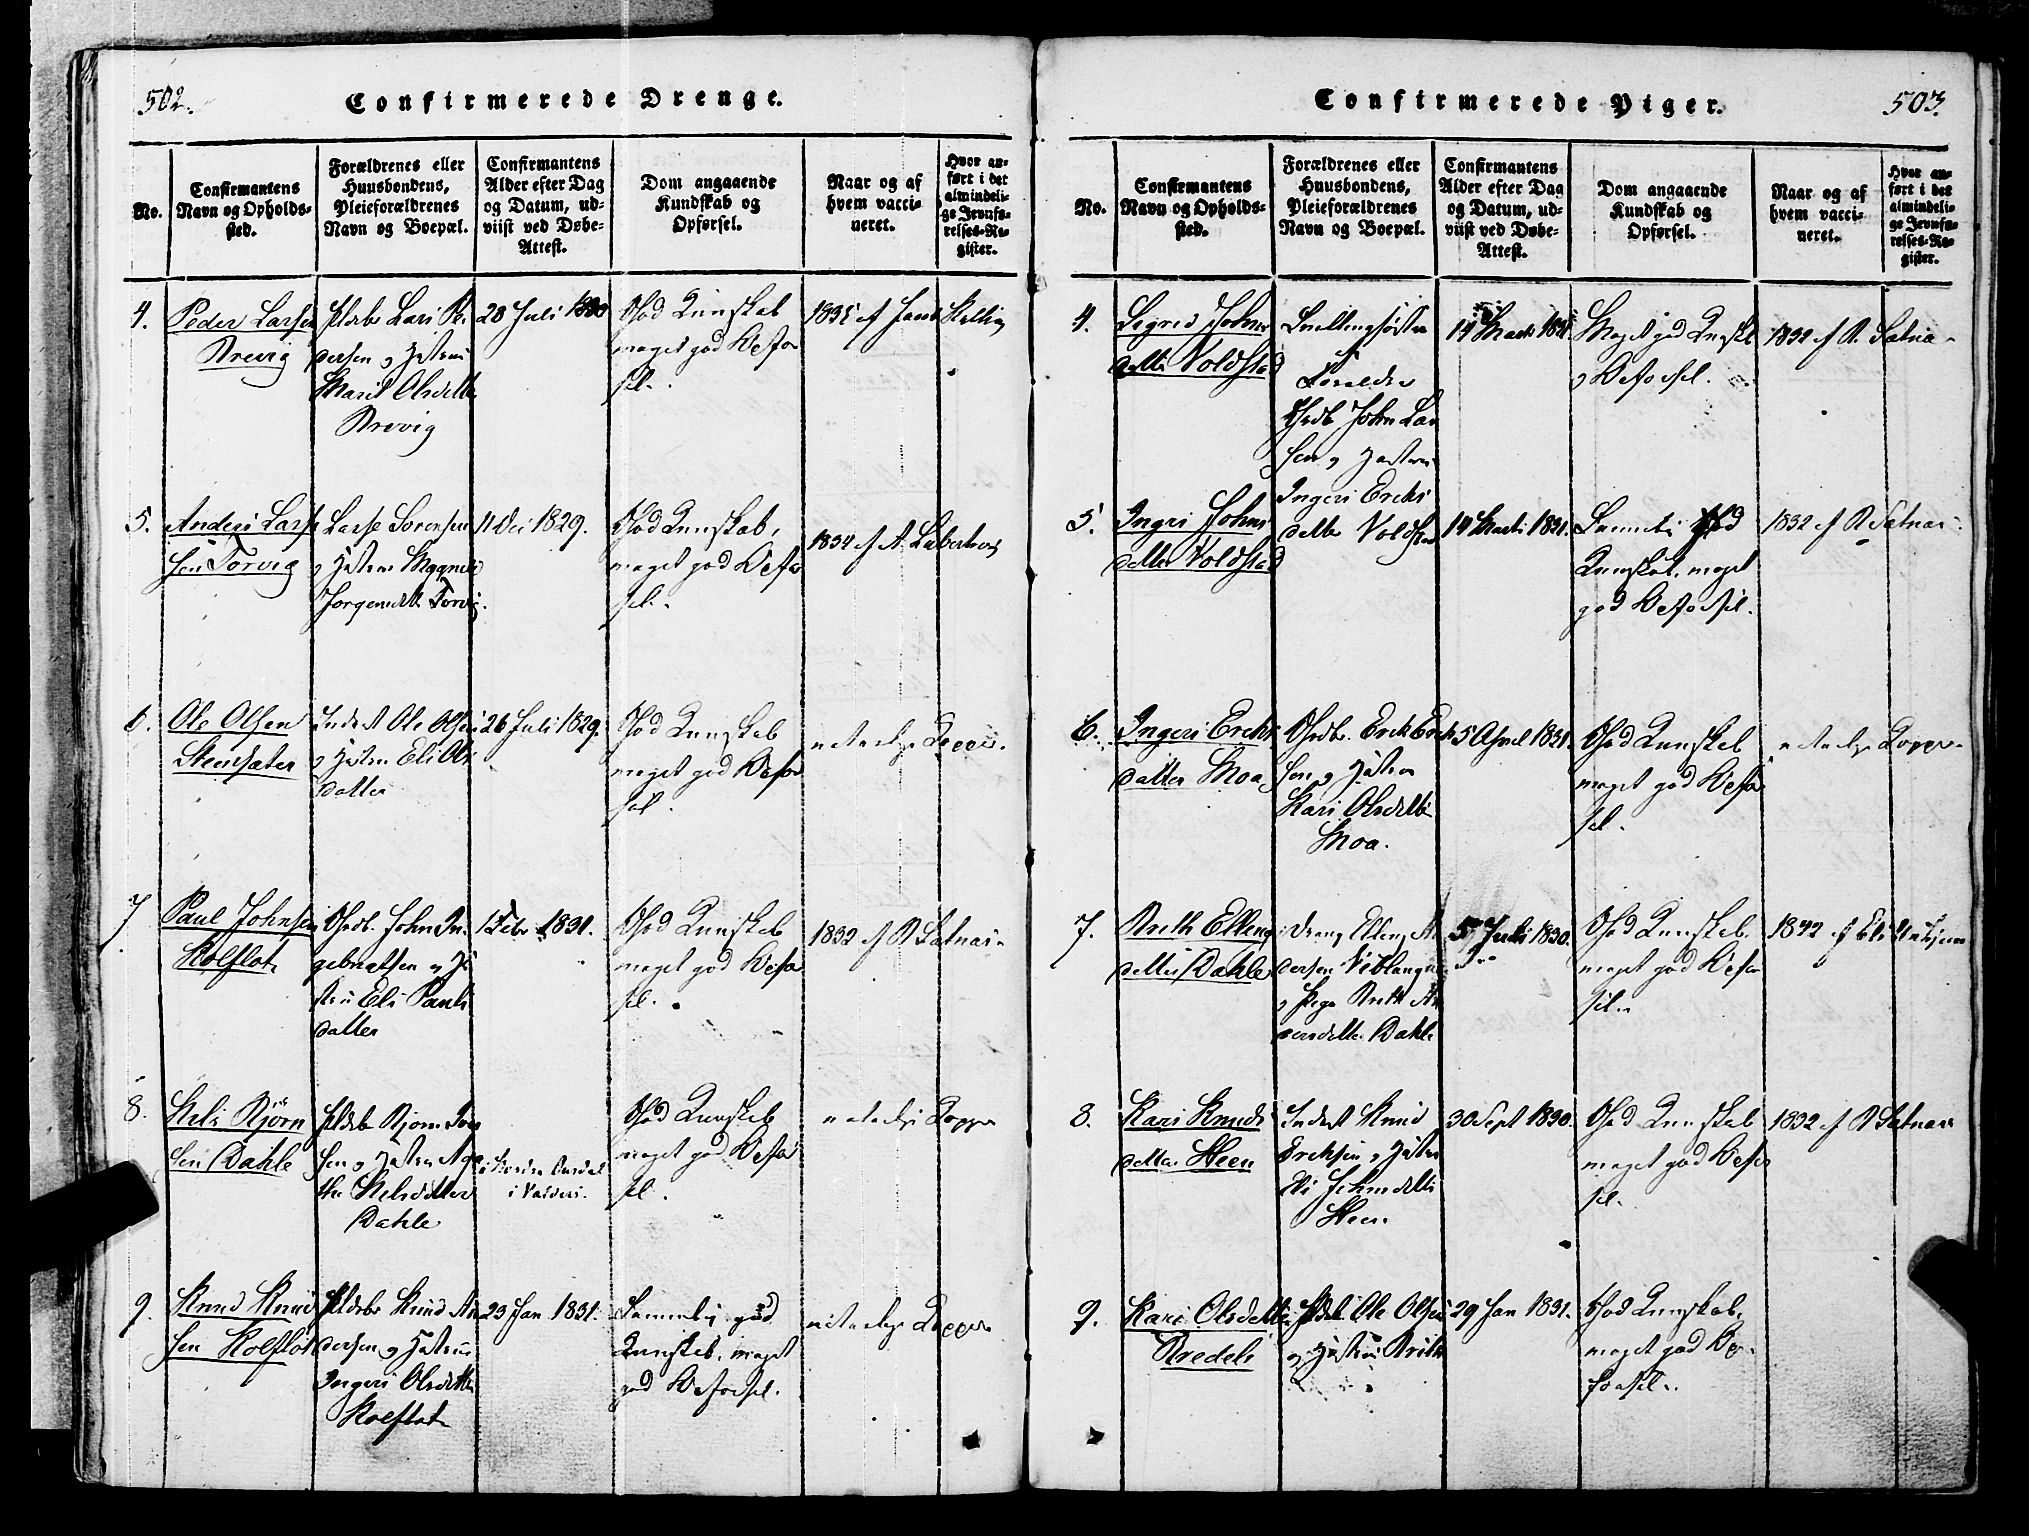 502.
Confirmerede Drenge.
No.
Confirmantens
Navn og Opholds-
sted.
Forældrenes eller
Huusbondens,
Pleieforældrenes
Navn og Boepæl.
Confirmantens
Alder efter Dag
og Datum, ud-
viist ved Døbe-
Attest.
Dom angaaende
Kundskab og
Opførsel.
Naar og af
hvem vacci-
neret.
Hvor an-
ført i det
almindeli-
ge Jevnfø-
relses-Re-
gister.
4.
Peder Larsen
Brevig
Lars Pe
dersen og Hustru
Marit Olsdatter
Brevig
28 Juli 1830
God Kunskab
meget god Opfør
sel.
1835 af Jens
5.
Anders Lars
sen Torvig
Lars Sorensen
og Hustru Magnild
Jorgensdtr Torvig.
11 Dec 1829.
God Kunskab,
meget god Opfør
sel.
1834 af A.
6.
Ole Olsen
Steensæter
Inderst Ole Olsen
og Hustru Eli Ols
datter
26 Juli 1829.
God Kunskab
meget god Opfør
sel.
naturlige Kopper.
7
Paul Johnsen
Kolflot
Grdb. John In
gebrigtsen og Hu
stru Eli Pauls
datter
1 Febr 1831.
God Kunskab
meget god Opfør
sel.
1832 af R Satnæs
8.
Nils Bjørn
sen Dahle
Bjørn Iver
sen og Hustru Aga
the Nelsdatter
Dahle
i Valders.
God Kunskab
meget god Opfør
sel.
naturlige Kopper
9.
Knud Knud
sen Kolflot
Knud An
dersen og Hustru
Ingeri Olsdatter
Kolflot
23 Jan 1831.
Temmelig god
Kunskab, meget
god Opførsel.
naturlige Kopper
503.
Confirmerede Piger.
No.
Confirmantens
Navn og Opholds-
sted.
Forældrenes eller
Huusbondens,
Pleieforældrenes
Navn og Boepæl.
Confirmantens
Alder efter Dag
og Datum, ud-
viist ved Døbe-
Attest.
Dom angaaende
Kundskab og
Opførsel.
Naar og af
hvem vacci-
neret.
Hvor an-
ført i det
almindeli-
ge Jevnfø-
relses-Re-
gister.
4.
Sigrid Johns
datter Voldstad
Tvillingsøstre
Foreldre
Grdb John Lar
sen og Hustru
Ingeri Ericks
datter Voldstad
14 Marts 1831
Meget god Kunsk
og Opførsel.
1832 af R. Satnæs
5.
Ingri Johns
datter Voldstad
14 Marts 1831.
Temmelig god
Kunskab, meget
god Opførsel.
1832 af R Satnæs
6.
Ingeri Ericks
datter Moa
Grdb. Erick Erick
sen og Hustru
Kari Olsdatter
Moa.
5 April 1831.
God Kunskab
meget god Opfør
sel.
naturlige Kopper
7.
Brith Elling
datter Dahle
Dreng Elling An
dersen
og Pige Brith An
dersdatter Dahle
5 Juli 1830.
God Kunskab.
meget god Opfør
sel.
1842 af
8.
Kari Knuds
datter Heen
Inderst Knud
Ericksen og Hustru
Johnsdatter
Heen
30 Sept 1830.
God Kunskab
meget god Opfør
sel.
1832 af R Satnæs
9.
Kari Olsdatter
Bredeli
Ole Olsen
og Hustru Brithe
29 Jan 1831.
God Kunskab,
meget god Op-
førsel.